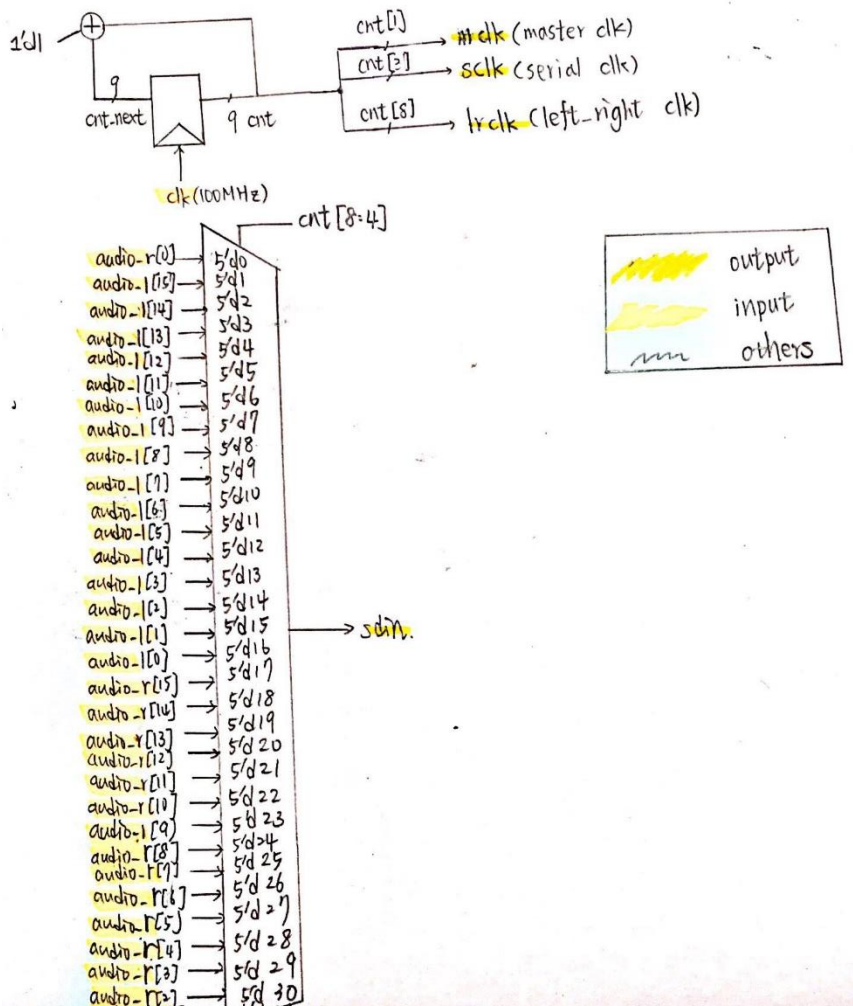 1'd1
cnt[1]
mclk (master clk)
cnt[3]
sclk (serial clk)
9
cnt_next
9 cnt
cnt[8]
lrclk (left_right clk)
clk (100MHz)
cnt[8:4]
output
input
others
audio_r[0] 5'd0
audio_l[15] 5'd1
audio_l[14] 5'd2
audio_l[13] 5'd3
audio_l[12] 5'd4
audio_l[11] 5'd5
audio_l[10] 5'd6
audio_l[9] 5'd7
audio_l[8] 5'd8
audio_l[7] 5'd9
audio_l[6] 5'd10
audio_l[5] 5'd11
audio_l[4] 5'd12
audio_l[3] 5'd13
audio_l[2] 5'd14
audio_l[1] 5'd15
audio_l[0] 5'd16
audio_r[15] 5'd17
audio_r[14] 5'd18
audio_r[13] 5'd19
audio_r[12] 5'd20
audio_r[11] 5'd21
audio_r[10] 5'd22
audio_l[9) 5'd23
audio_r[8] 5'd24
audio_r[7] 5'd25
audio_r[6] 5'd26
audio_r[5) 5'd27
audio_r[4] 5'd28
audio_r[3] 5'd29
audio_r[2] 5'd30
sdin.